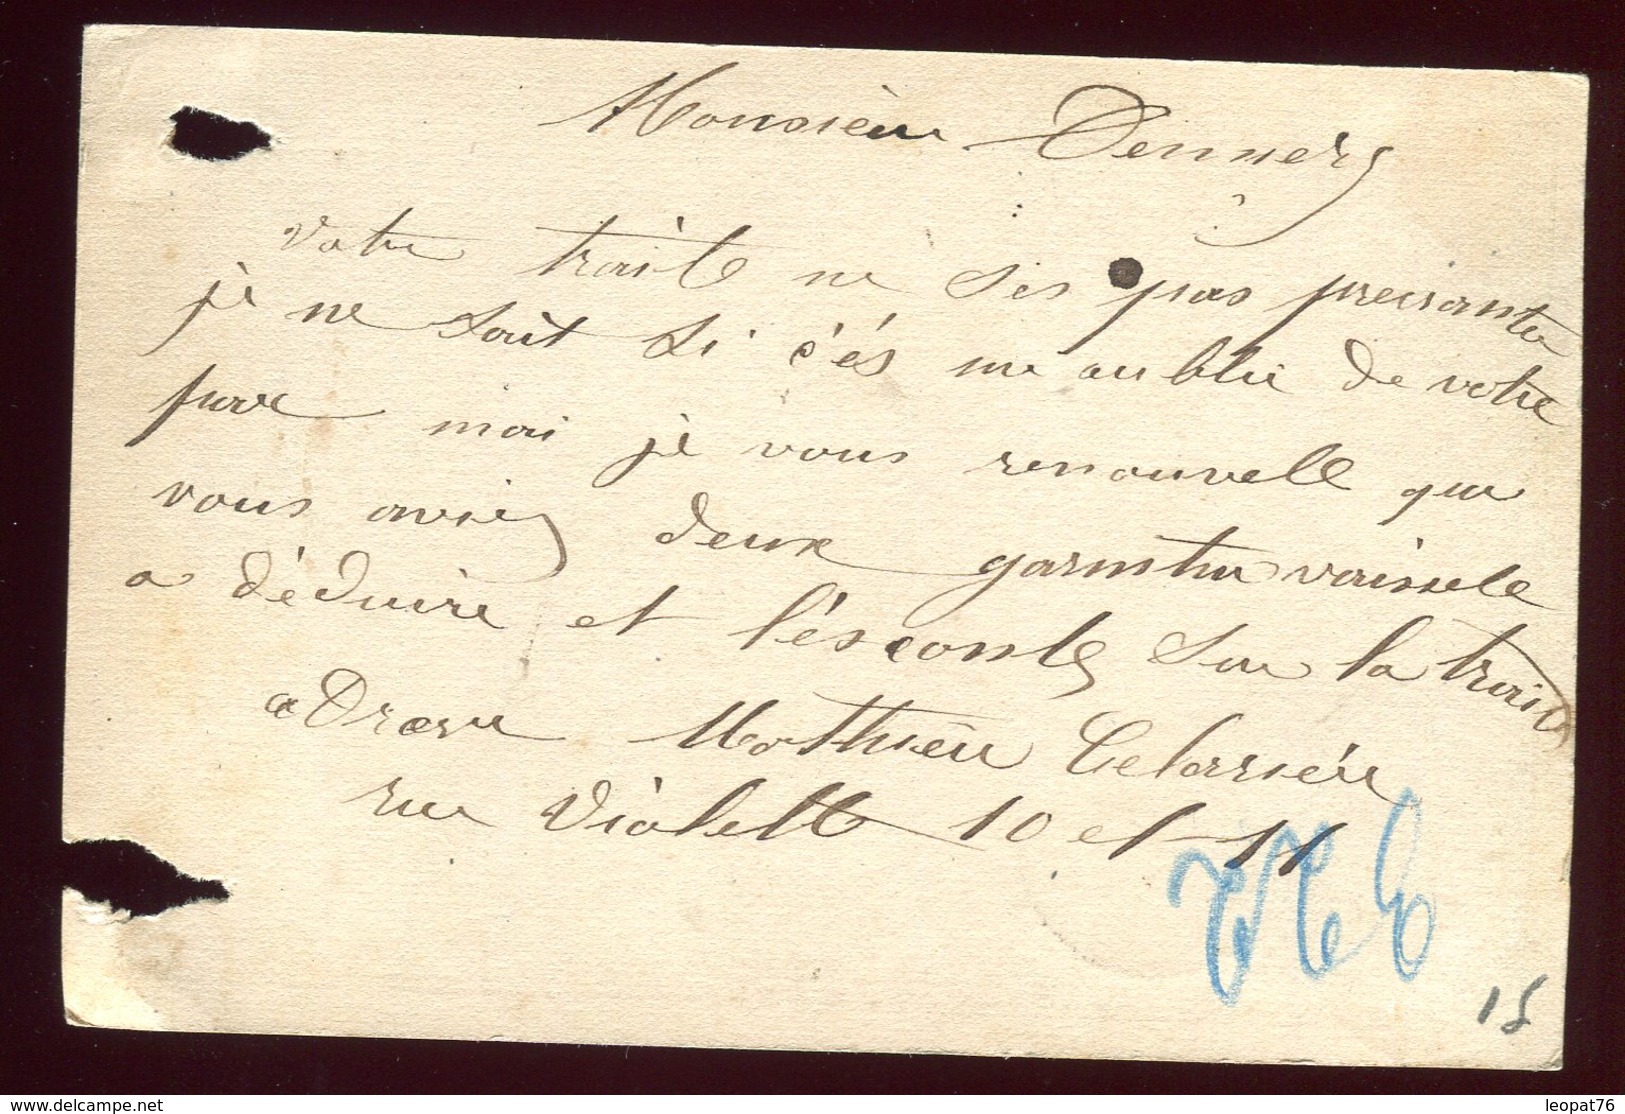 Monsieur Denners
Votre traite ne ses pas presante
je ne sait si c'és un oublie de votre
par moi je vous renouvelle que
vous aviez deux garnitur vaissele
a déduire et l'èsconte sur la traite
adresse Mathieu
rue Violette 10 et 11
15
delcampe.net
leopat76